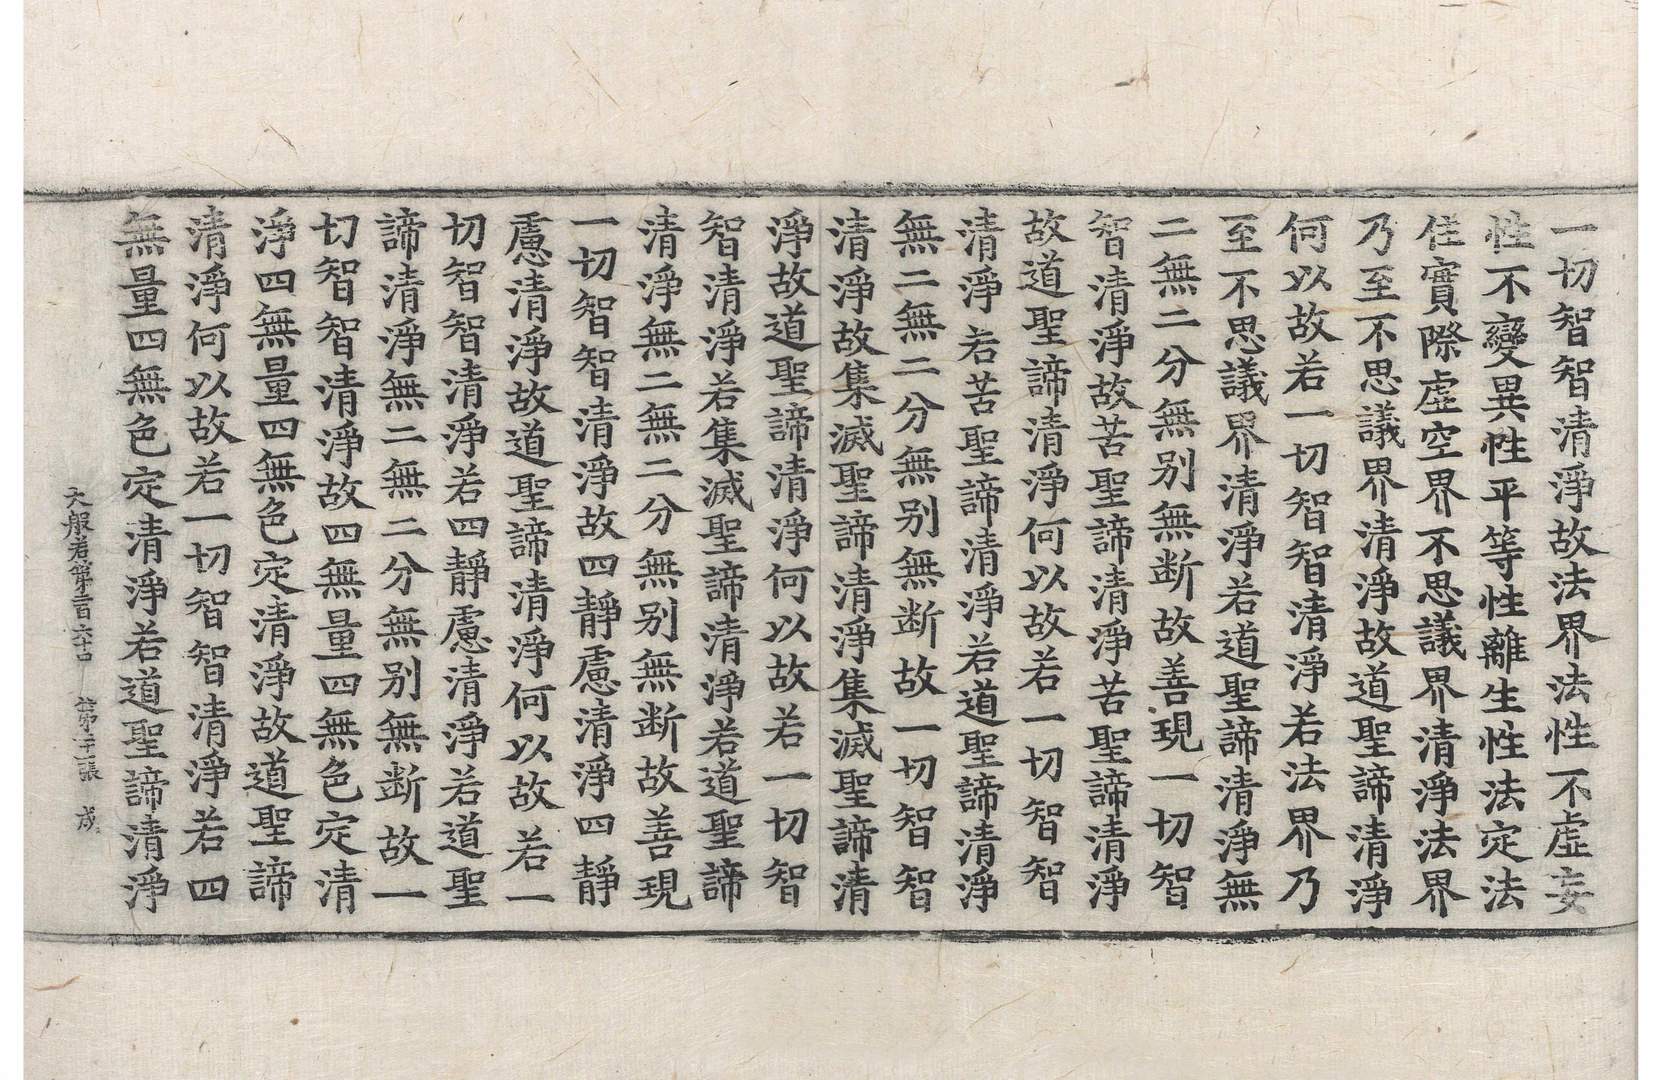 一切智智清淨故法界法性不虚妄
性不變異性平等性離生性法定法
住實際虚空界不思議界清淨法界
乃至不思議界清淨故道聖諦清淨
何以故若一切智智清淨若法界乃
至不思議界清淨若道聖諦清淨無
二無二分無别無断故善現一切智
智清淨故苦聖諦清淨苦聖諦清淨
故道聖諦清淨何以故若一切智智
清淨若苦聖諦清淨若道聖諦清淨
無二無二分無别無断故一切智智
清淨故集滅聖諦清淨集滅聖諦清
淨故道聖諦清淨何以故若一切智
智清淨若集滅聖諦清淨若道聖諦
清淨無二無二分無别無断故善現
一切智智清淨故四靜慮清淨四靜
慮清淨故道聖諦清淨何以故若一
切智智清淨若四靜慮清淨若道聖
諦清淨無二無二分無别無断故一
切智智清淨故四無量四無色定清
淨四無量四無色定清淨故道聖諦
清淨何以故若一切智智清淨若四
無量四無色定清淨若道聖諦清淨
大般若第二百六十 第 張